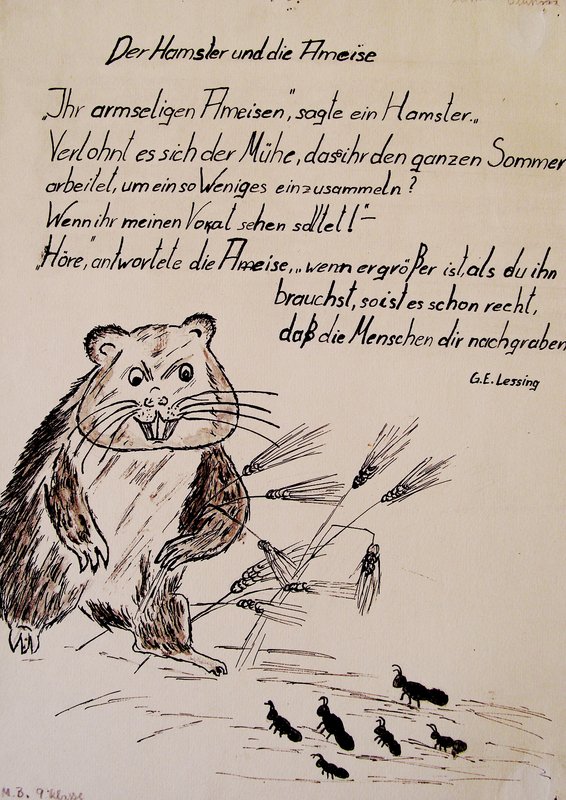 Der Hamster und die Ameise
„Ihr armseligen Ameisen", sagte ein Hamster.„
Verlohnt es sich der Mühe, dass ihr den ganzen Sommer
arbeitet, um ein so Weniges einzusammeln?
Wenn ihr meinen Vorat sehen solltet!"–
„Höre," antwortete die Ameise, „wenn er größer ist, als du ihn
brauchst, so ist es schon recht,
daß die Menschen dir nachgraben
G.E. Lessing
M.B. 9 Klasse